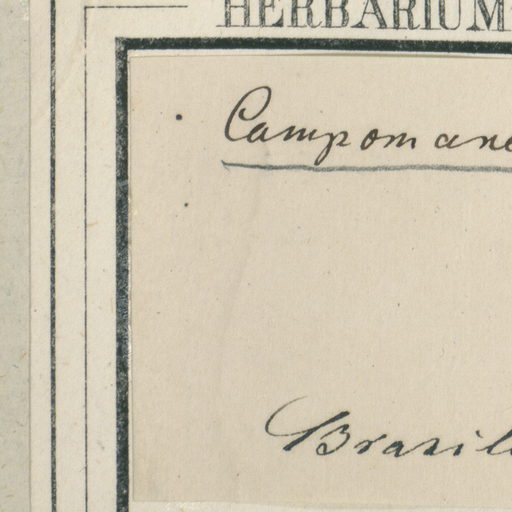 HERBARIUM
Campomane
Brasil